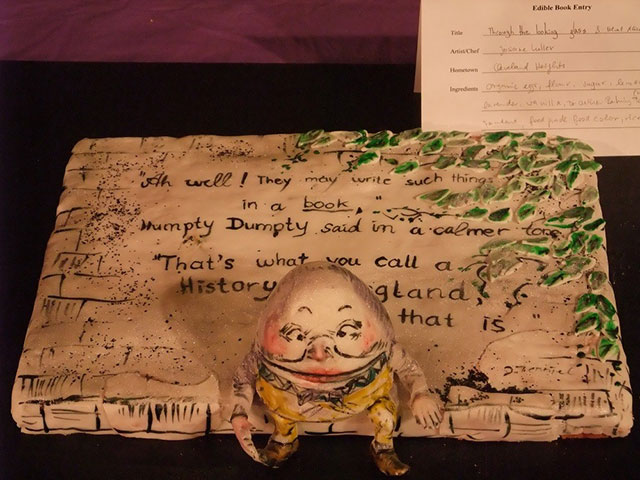 Edible Book Entry
Title Through the looking glass &
Artist/Chef
Hometown Cleveland Heights
Ingredients organic eggs, flour, sugar,
vanilla,
food color,
"Ah well! They may write such things
in a book,"
Humpty Dumpty said in a calmer
"That's what you call a
History gland,
that is "